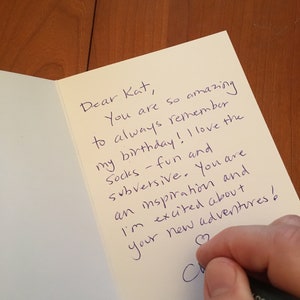 Dear Kat,
You are so amazing
to always remember
my birthday! I love the
socks - fun and
subversive. You are
an inspiration and
I'm excited about
your new adventures!
♡